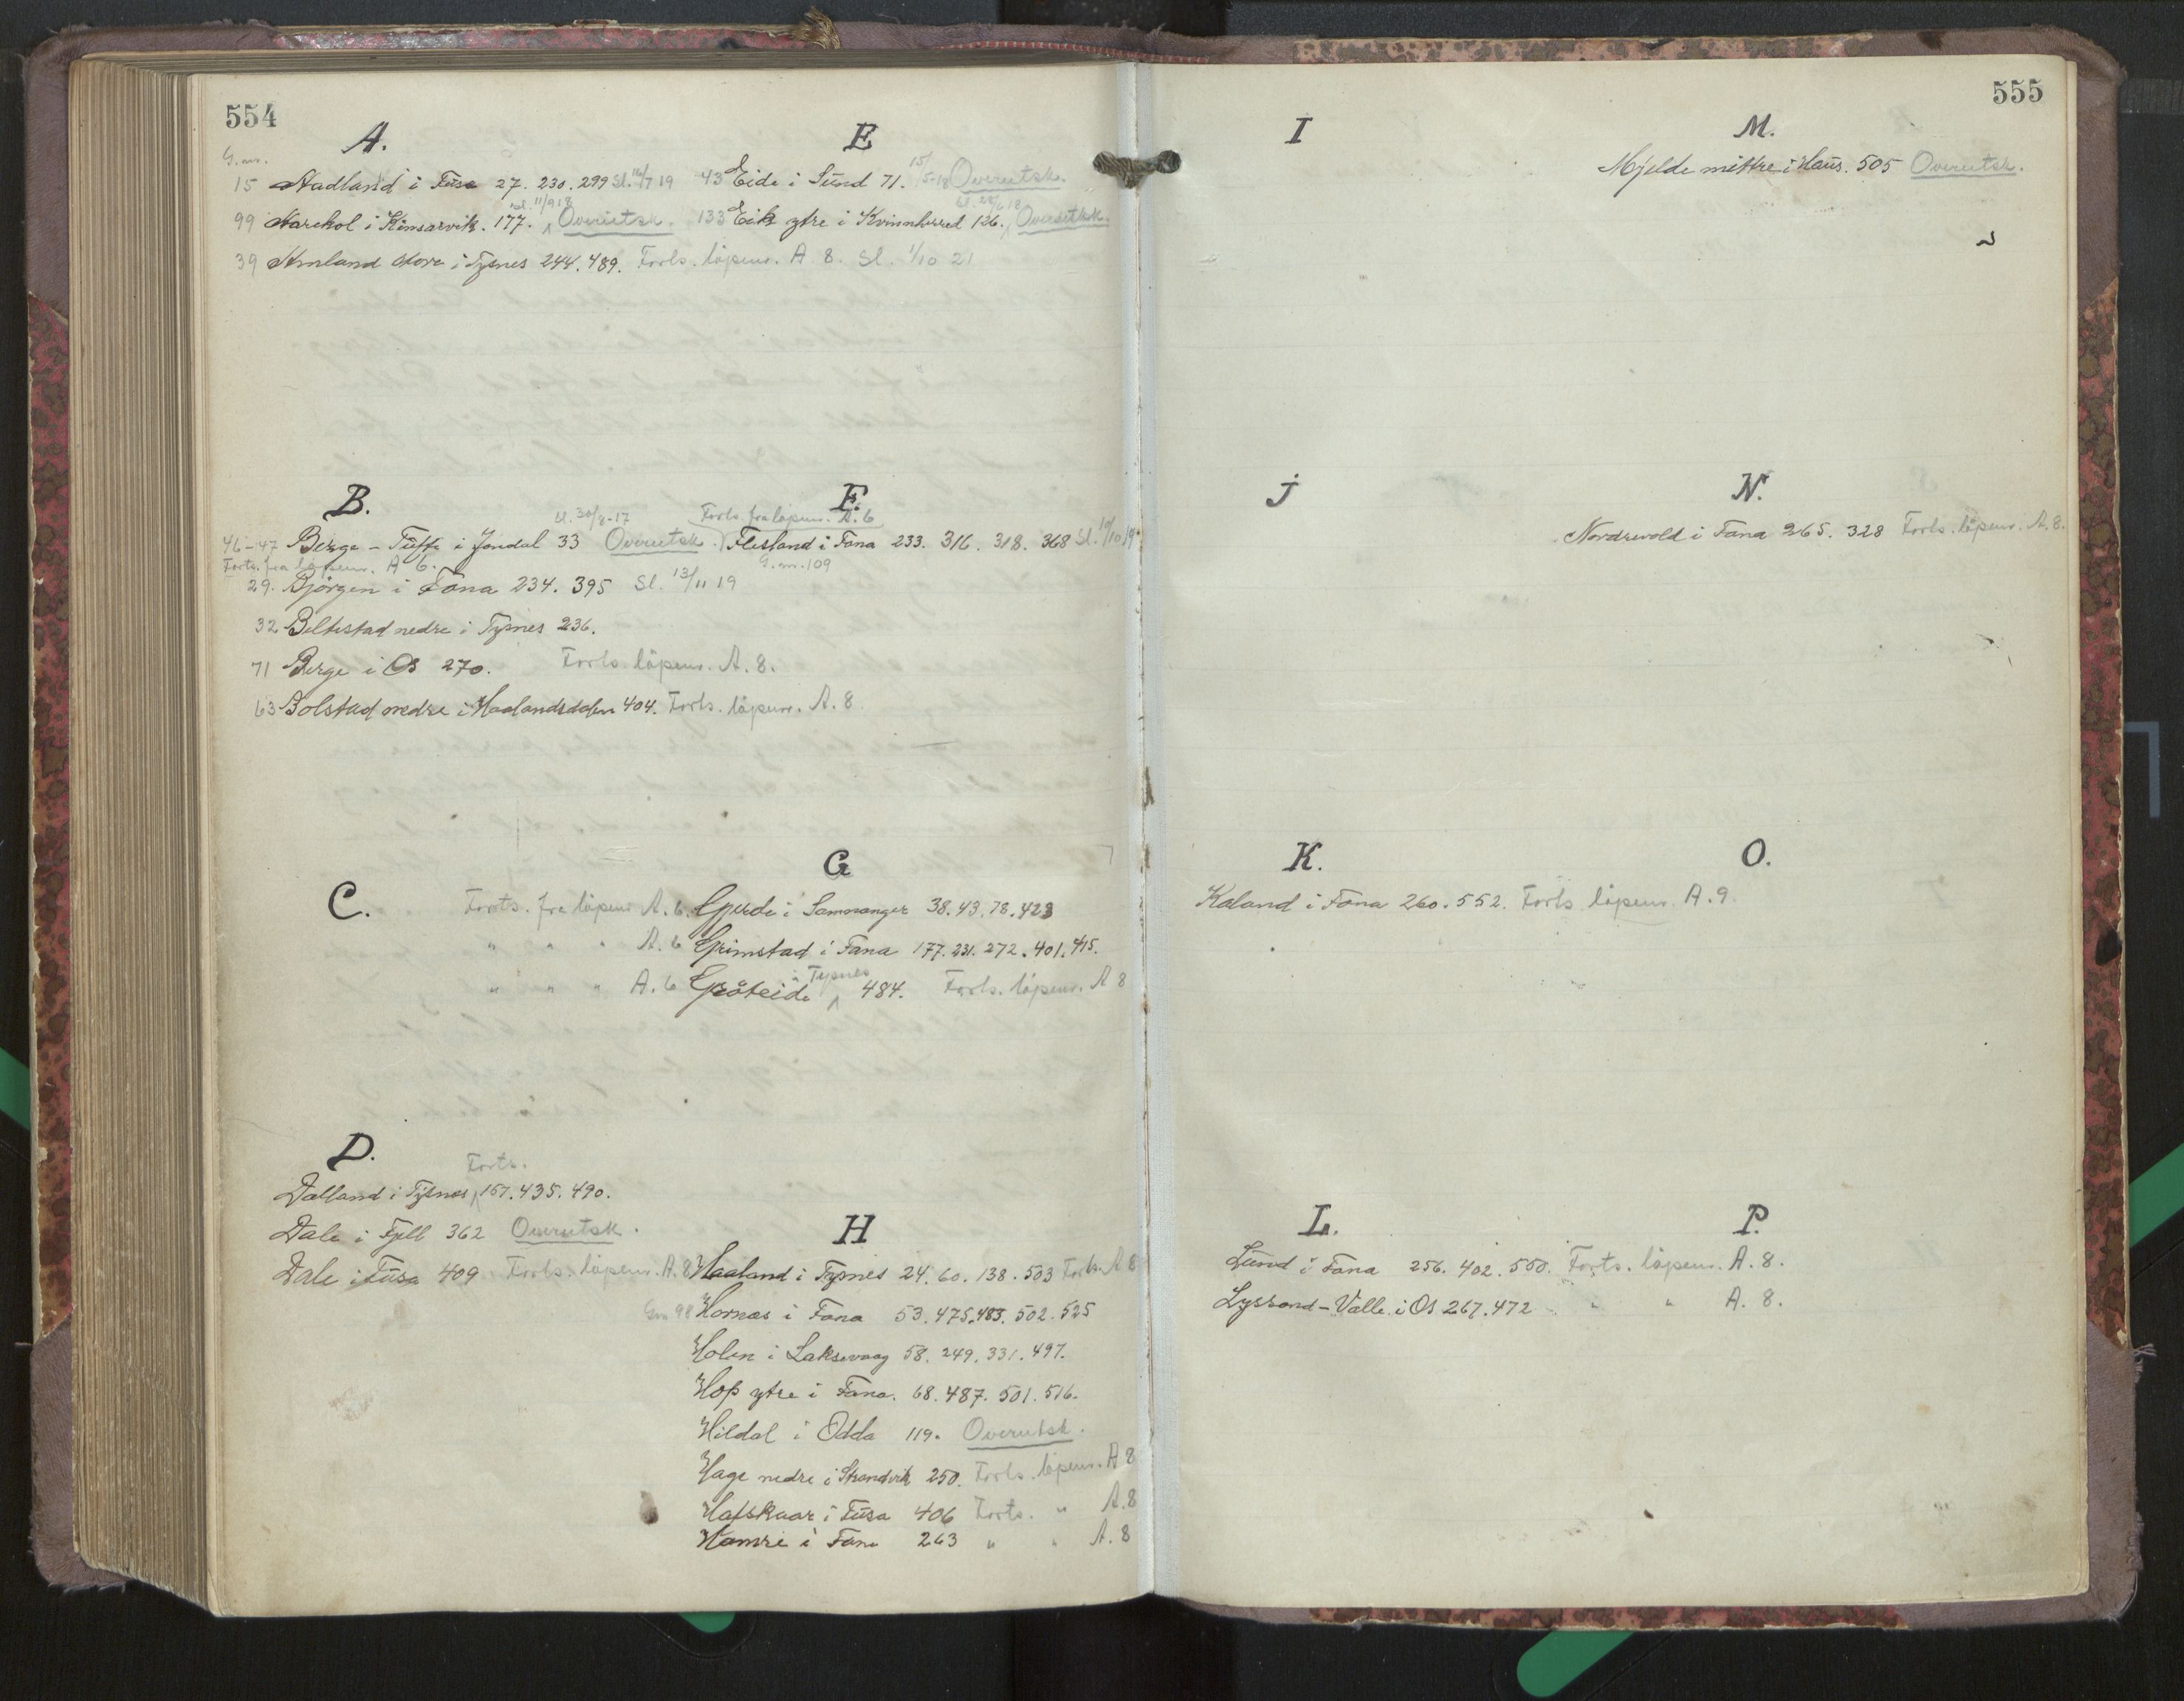 554
A.
G.nr.
15 Aadland i Fusa 27. 230. 299 Sl. 16/7 19
sl. 11/9 18
99 Aarekol i Kinsarvik. 177. Overutsk.
39 Amland store i Tysnes 244. 489. Forts. löpenr. A 8. Sl. 1/10 21
E
15/5-18
43 Eide i Sund 71. Overutsk.
sl. 28/6 18
133 Eik ytre i Kvinnherred 126. Overutsk.
B.
sl. 30/8-17
46-47 Berge - Tuffe i Jondal 33 Overutsk.
Forts. fra löpenr. A 6.
29. Björgen i Fana 234. 395 Sl. 13/11 19
32 Beltestad nedre i Tysnes 236.
71 Berge i Os 270. Forts. löpenr. A. 8.
63 Bolstad nedre i Haalandsdalen 404. Forts. löpenr. A. 8.
F.
Forts. fra löpenr. A. 6
Flesland i Fana 233. 316. 318. 368 Sl. 10/10 19
G.nr. 109
C.
G
Forts. fra löpenr A. 6. Gjerde i Samnanger 38. 43. 78. 423
" " " A. 6 Grimstad i Fana 177. 231. 272. 401. 415.
i Tysnes
" " " A. 6 Gråteide 484. Forts. löpenr. A 8
D.
Forts.
Dalland i Tysnes 157. 435. 490.
Dale i Fjell 362 Overutsk.
Dale i Fusa 409 Forts. löpenr. A. 8
H
Haaland i Tysnes 24. 60. 138. 503 Forts. A 8
Gnr 98 Hornæs i Fana 53. 475. 483. 502. 525
Holen i Laksevaag 58. 249. 331. 497.
Hop ytre i Fana. 68. 487. 501. 516.
Hildal i Odda 119. Overutsk.
Hage nedre i Strandvik 250. Forts. löpenr. A 8
Hafskaar i Fusa 406 Forts. " A. 8
Hamre i Fana 263 " " A. 8
555
I
M.
Mjelde mittre i Haus. 505 Overutsk.
J
N.
Nordrevold i Fana 265. 328 Forts. löpenr. A. 8.
K.
Kaland i Fana 260. 552. Forts löpenr. A. 9.
O.
L.
Lund i Fana 256. 402. 550. Forts. löpenr. A. 8.
Lyssand - Valle i Os 267. 472 " " A. 8.
P.